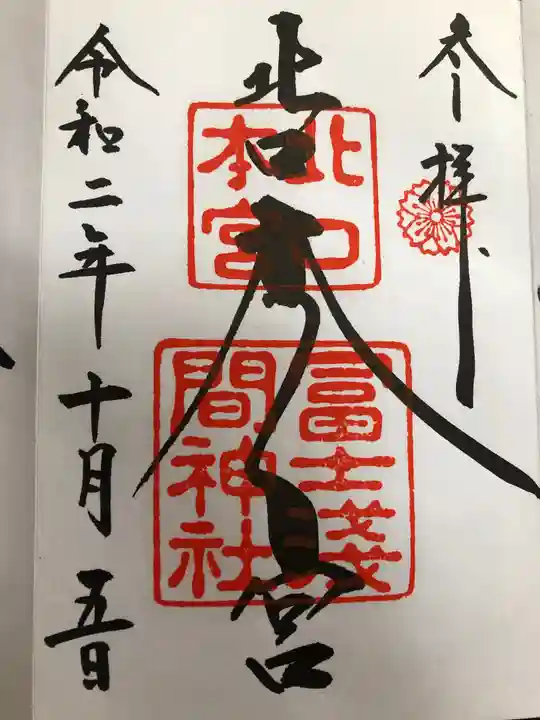 参拝
北口本宮
北口
本宮
冨士淺
間神社
令和二年十月五日